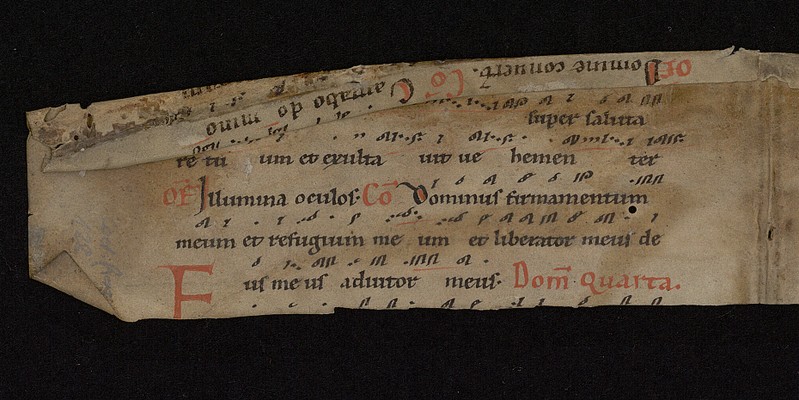 OF Domine convert. Co Cantabo do mino
super saluta
re tu um et exulta uit ue hemen ter
OF Illumina oculos. Co Dominus firmamentum
meum et refugium me um et liberator meus de
us meus adiutor meus. Dom̅ quarta.